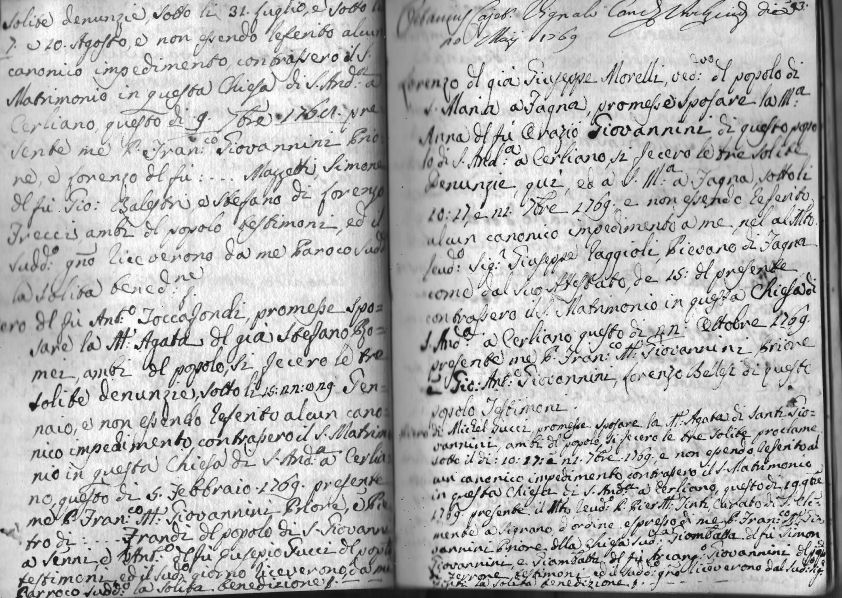 solite denunzie sotto li 31. luglio, e sotto li
7. e 10. Agosto, e non essendo referito alcun
canonico impedimento, contrassero il S.
Matrimonio in questa Chiesa di S. And.ᵃ a
Cerliano, questo dì 9. 7bre 1768. pre
sente me P. Fran:ᶜᵒ Giovannini Prio-
re, e Lorenzo del fù : .... Mazzetti Simone
del fù Gio: Balestri e Stefano di Lorenzo
Trecci, ambi del popolo testimoni, ed il
sudd:ᵒ gno riceverono da me Paroco sudd:ᵒ
la solita bened.ⁿᵉ
del fù Ant:ᵒ Toccafondi, promesse spo-
sare la M:ᵃ Agata del già Stefano Ro-
mei ambi del popolo, si fecero le tre
solite denunzie, sotto li 15: 22: e 29 Gen-
naio, e non essendo referito alcun cano-
nico impedimento contrassero il S. Matrim
nio in questa Chiesa di S. And:ᵃ a Cerlia-
no, questo dì 5. Febbraio 1769. presente
me P. Fran:ᶜᵒ M:ᵃ Giovannini Priore, e Pie
tro di ..... del popolo di S. Giovanni
a Senni, e Ant:ᵒ del fù Eusepio Tucci del popolo
testimoni, ed il sud:ᵒ giorno riceverono da me
Parroco sudd:ᵒ la solita benedizione
1769
Lorenzo del già Giuseppe Morelli, ved:ᵛᵒ del popolo di
S. Maria a Fagna, promesse sposare la M:ᵃ
Anna del fù Orazio Giovannini di questo popo
lo di S. And:ᵃ a Cerliano, si fecero le tre solite
denunzie qui, ed a S. M:ᵃ a Fagna, sotto li
10: 17 e 21. 7bre 1769. e non essendo referito
alcun canonico impedimento a me, ne al Mto.
Reud:ᵒ Sig:ʳ Giuseppe Raggioli Pievano di Fagna
come dal suo Attestato, de 15: del presente
contrassero il S. Matrimonio in questa Chiesa di
S. And:ᵃ a Cerliano questo dì Ottobre 1769.
presente me P. Fran:ᶜᵒ M:ᵃ Giovannini Priore
e Gio: Ant: Giovannini, Lorenzo Bellesi di questo
popolo Testimoni.
di Michel Gucci, promesse sposare la M:ᵃ Agata di Santi Gio-
vannini, ambi di popolo, si fecero le tre solite proclame
sotto il dì: 10: 17: e 21. 7bre 1769. e non essendo referito al
cun canonico impedimento contrassero il S. Matrimonio
in questa Chiesa di S. And:ᵃ a Cerliano, questo dì
1769. presente il Mto. Reud:ᵒ P. Pier M:ᵃ Curato di
a Signano d'ordine espresso di me P. Fran:ᶜᵒ M:ᵃ Gio-
vannini Priore della Chiesa sud:ᵃ Giombatta del fù Simon
Giovannini, e Giambatta del fù Giovannini del
testimoni ed il sud:ᵒ gno riceverono dal sud:ᵒ
la solita benedizione